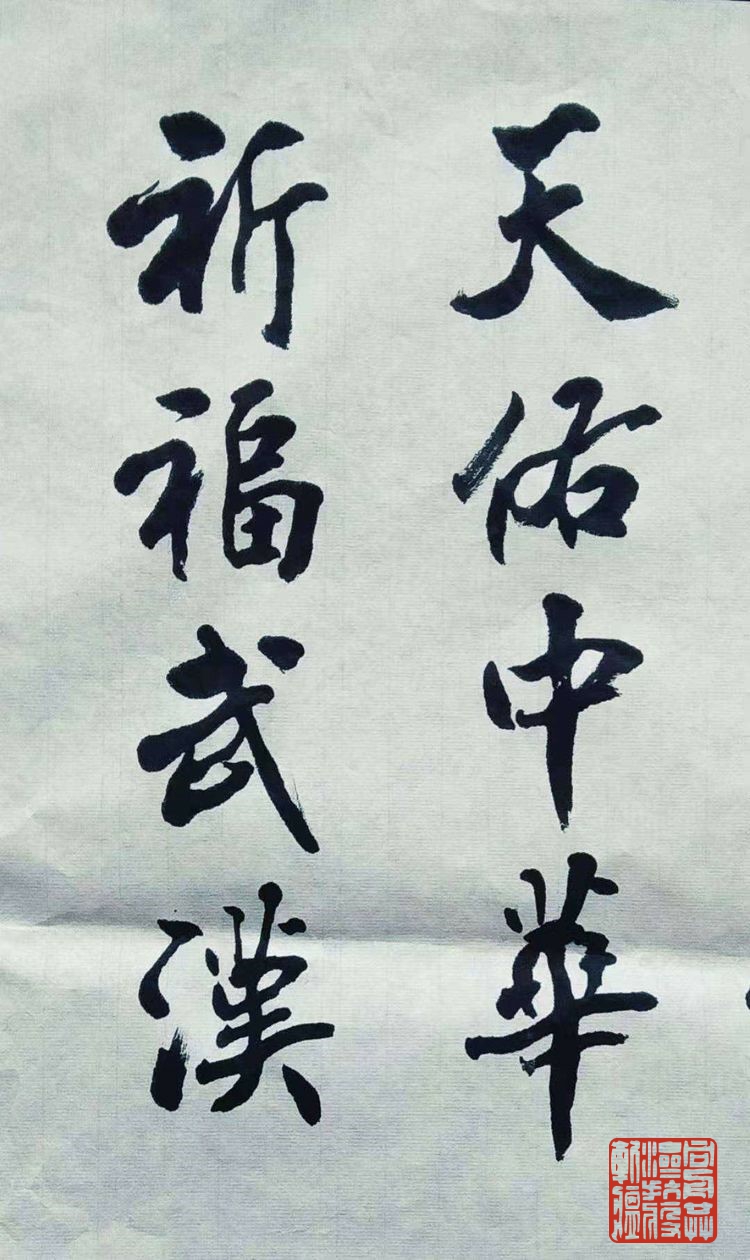 天佑中華
祈福武漢